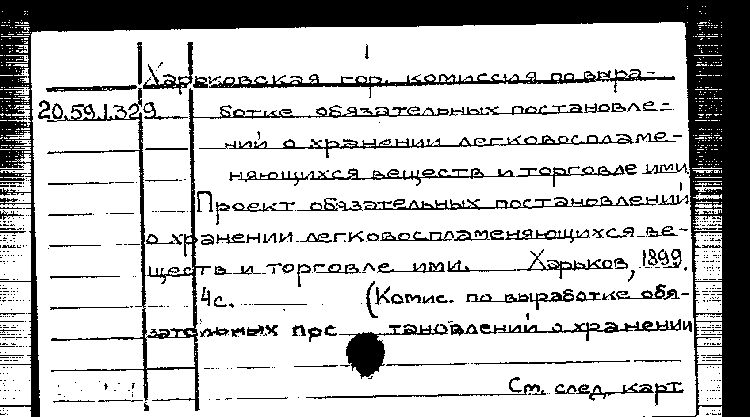 1
Харьковская гор. комиссия по выра-
20.59.1.329 ботке обязательных постановле-
ний о хранении легковоспламе-
няющихся веществ и торговле ими
Проект обязательных постановлений
о хранении легковоспламеняющихся ве-
ществ и торговле ими. Харьков, 1899.
4 с. (Комис. по выработке обя-
зательных пос тановлений о хранении
См. след. карт.